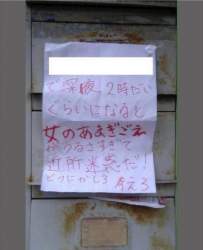 で深夜2時だい
くらいになると
女のあえぎごえ
がうるさすぎて
近所迷惑だ!
どうにかしろ 考えろ